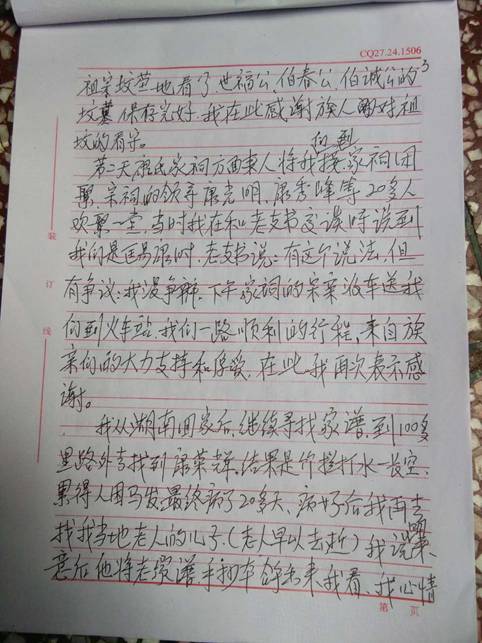 CQ27.24.1506
祖宗坟茔地看了世福公、伯春公、伯诚公的3
坟墓保存完好,我在此感谢族人们对祖
坟的看守。
第二天康氏家祠方面来人将我们接到家祠团
聚,宗祠的领导康光明,康秀峰等20多人
欢聚一堂,当时我在和老支书交谈时说到
我们是匡易康时,老支书说:有这个说法,但
有争议;我没争辩,下午家祠的宗亲派车送我
们到火车站,我们一路顺利的行程,来自族
亲们的大力支持和厚爱,在此我再次表示感
谢。
我从湖南回家后,继续寻找家谱,到100多
里路外去找到康荣辉,结果是竹栏打水一场空,
累得人困马发,最终病了20多天,病好后我再去
找我当地老人的儿子(老人早以去逝)我说明来
意后他将老须谱手抄本拿出来我看,我心情
装
订
线
第 页